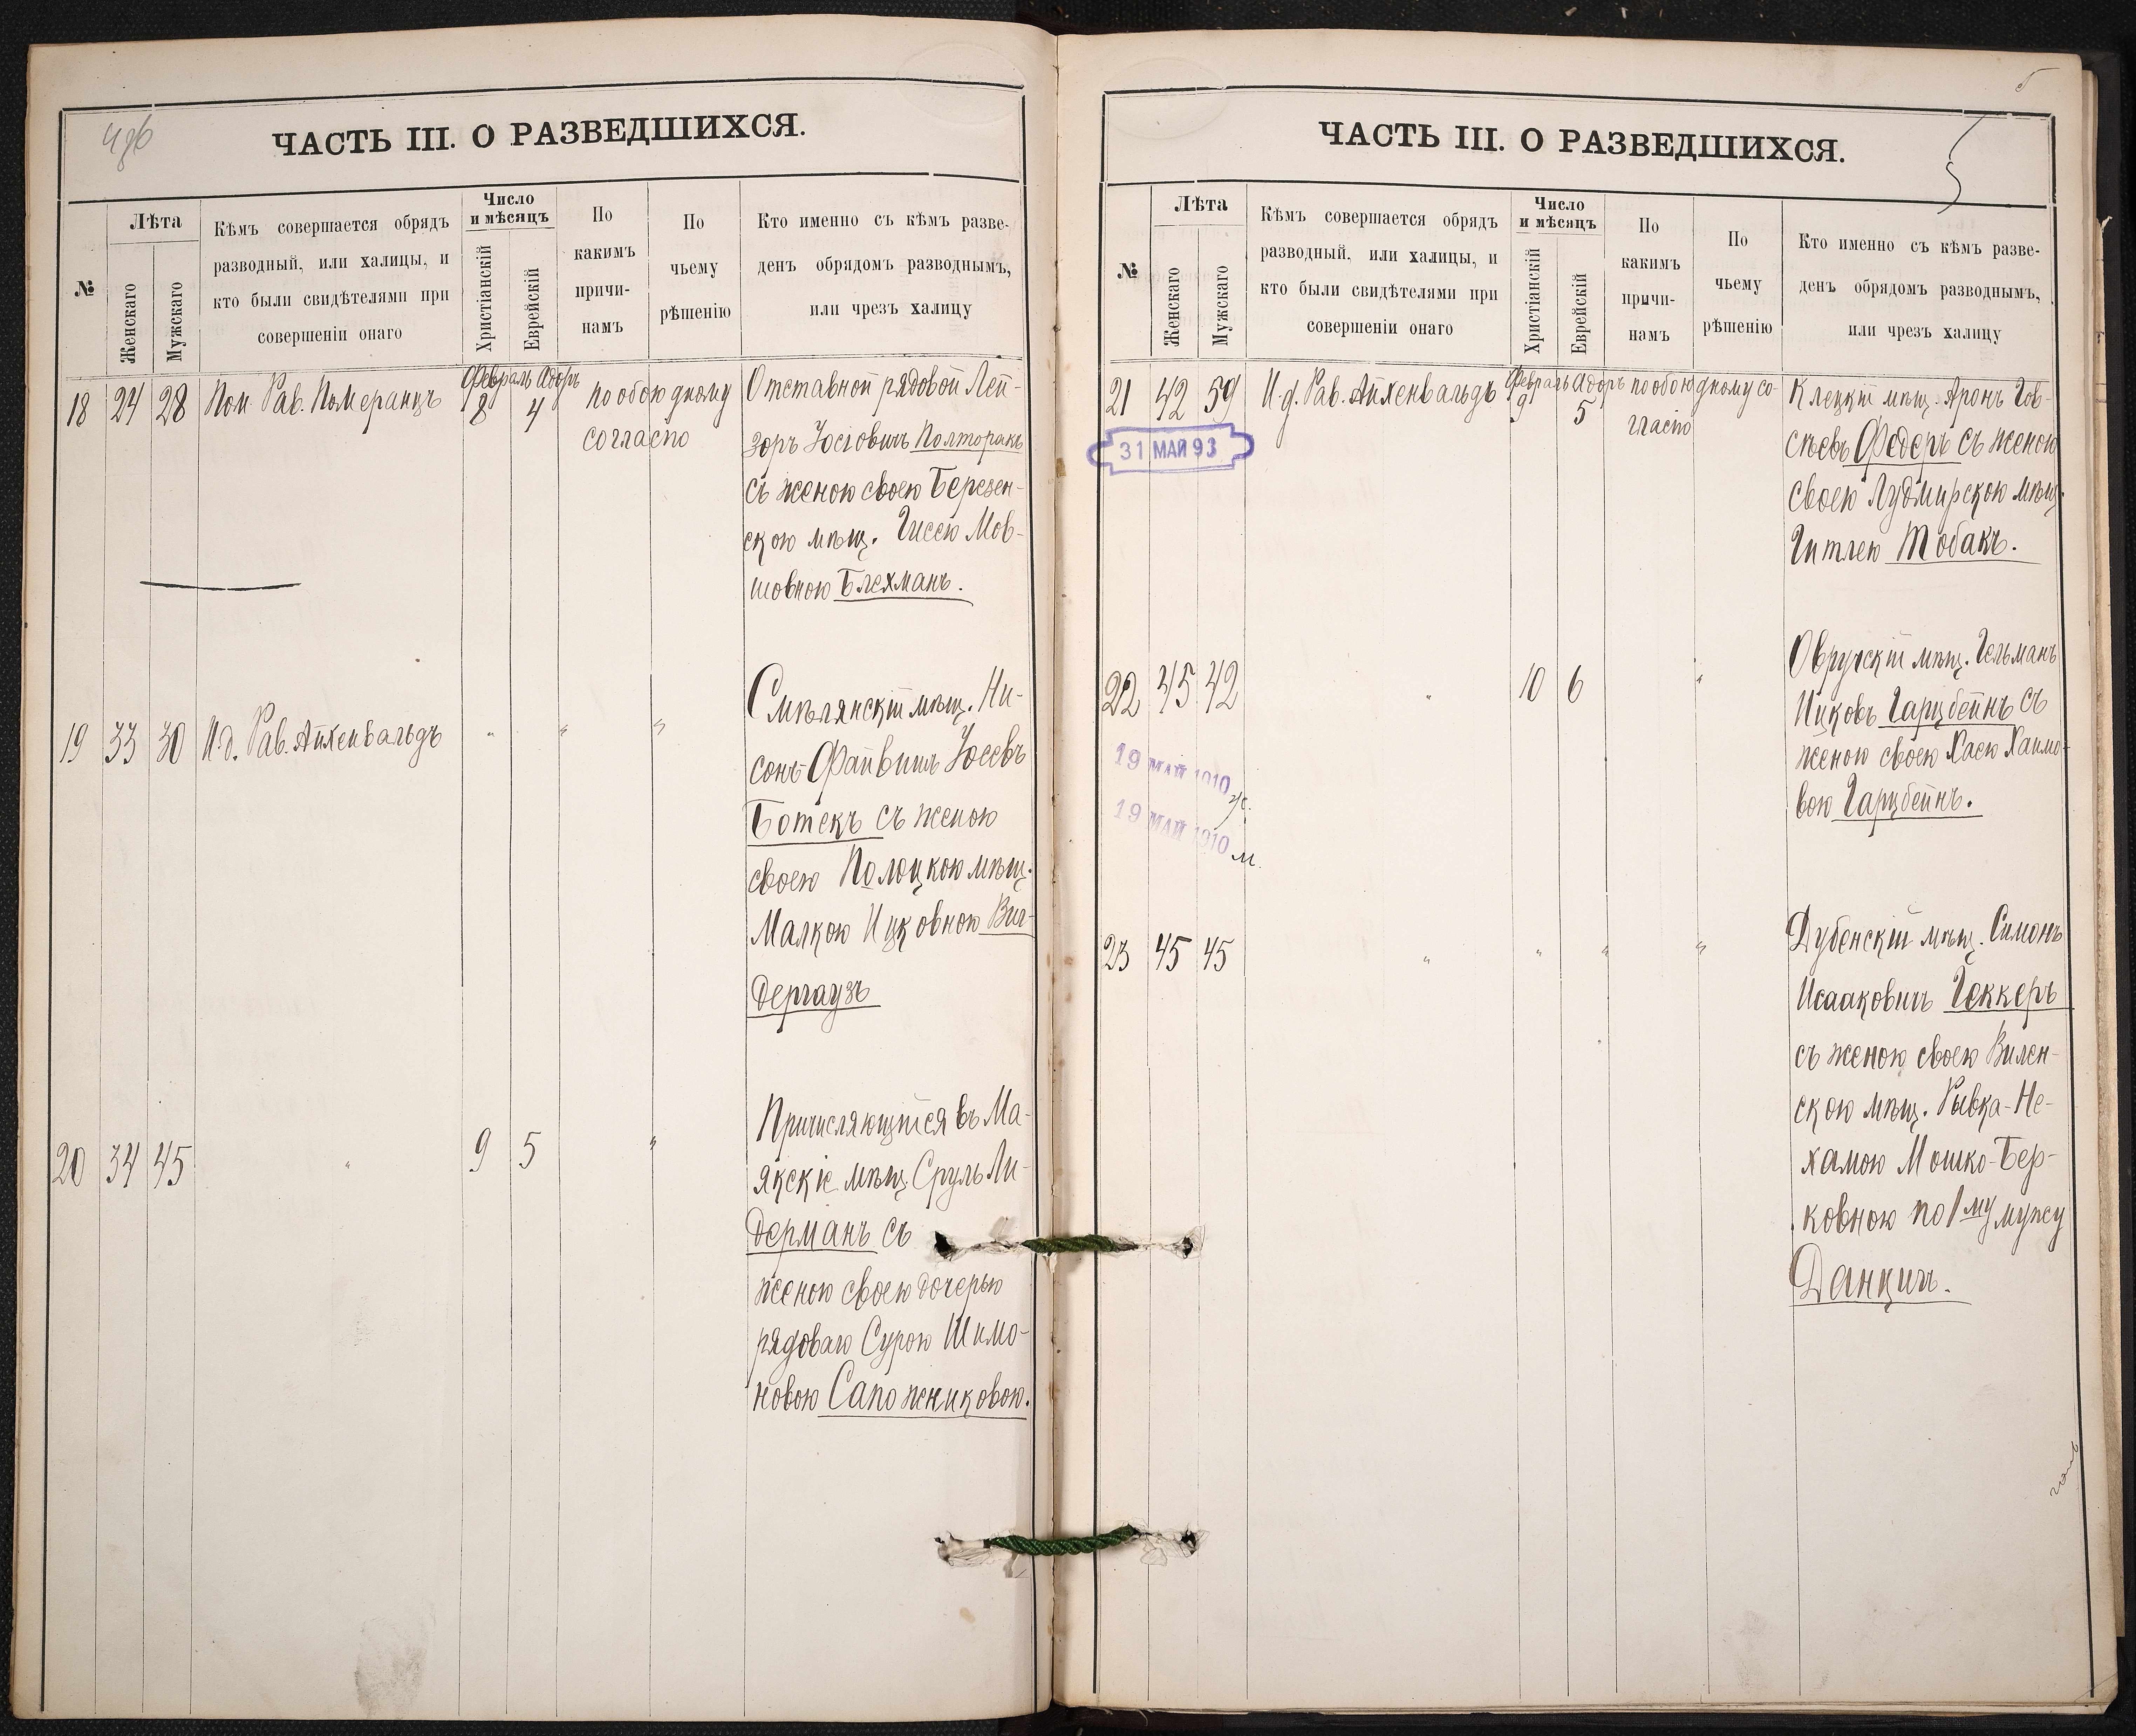 ЧАСТЬ III. О РАЗВЕДШИХСЯ.
№
Лѣта
Женскаго
Мужскаго
Кѣмъ совершается обрядъ
разводный, или халицы, и
кто были свидѣтелями при
совершеніи онаго
Число
и мѣсяцъ
Христіанскій
Еврейскій
По
какимъ
причи-
намъ
По
чьему
рѣшенію
Кто именно съ кѣмъ разве-
денъ обрядомъ разводнымъ,
или чрезъ халицу
18 24 28 Пом. Рав. Померанцъ
Февраль Адоръ
8 4
по обоюдному
согласію
Отставной рядовой Лей-
зоръ Іосіовичъ Полторакъ
съ женою своею Березен-
скою мѣщ. Гиссею Мов-
шовною Блехманъ.
19 33 30 И.д. Рав. Айхенвальдъ " " "
Смѣлянскій мѣщ. Ни-
сонъ-Файвишъ Іосевъ
Ботекъ съ женою
своею Полоцкою мѣщ.
Малкою Ицковною Виг-
дергаузъ
20 34 45 " 9 5 "
Причисляющійся въ Ма-
якскіе мѣщ. Сруль Ли-
дерманъ съ
женою своею дочерью
рядоваго Сурою Шимо-
новою Сапожниковою.
5
ЧАСТЬ III. О РАЗВЕДШИХСЯ.
5
№
Лѣта
Женскаго
Мужскаго
Кѣмъ совершается обрядъ
разводный, или халицы, и
кто были свидѣтелями при
совершеніи онаго
Число
и мѣсяцъ
Христіанскій
Еврейскій
По
какимъ
причи-
намъ
По
чьему
рѣшенію
Кто именно съ кѣмъ разве-
денъ обрядомъ разводнымъ,
или чрезъ халицу
21 42 59 И.д. Рав. Айхенвальдъ
Февраль Адоръ
9 5
по обоюдному со-
гласію
31 МАЙ 93
Клецкій мѣщ. Аронъ Гов-
сѣевъ Федеръ съ женою
своею Лудмирскою мѣщ.
Гитлею Тобакъ.
22 45 42 " 10 6 "
19 МАЙ 1910
19 МАЙ 1910 м.
Овручскій мѣщ. Гельманъ
Ицковъ Гарцбейнъ съ
женою своею Хаею Хаимо-
вою Гарцбейнъ.
23 45 45 " " " "
Дубенскій мѣщ. Симонъ
Исааковичъ Геккеръ
съ женою своею Вилен-
скою мѣщ. Рывка-Не-
хамою Мошко-Бер-
ковною по 1му мужу
Данцигъ.